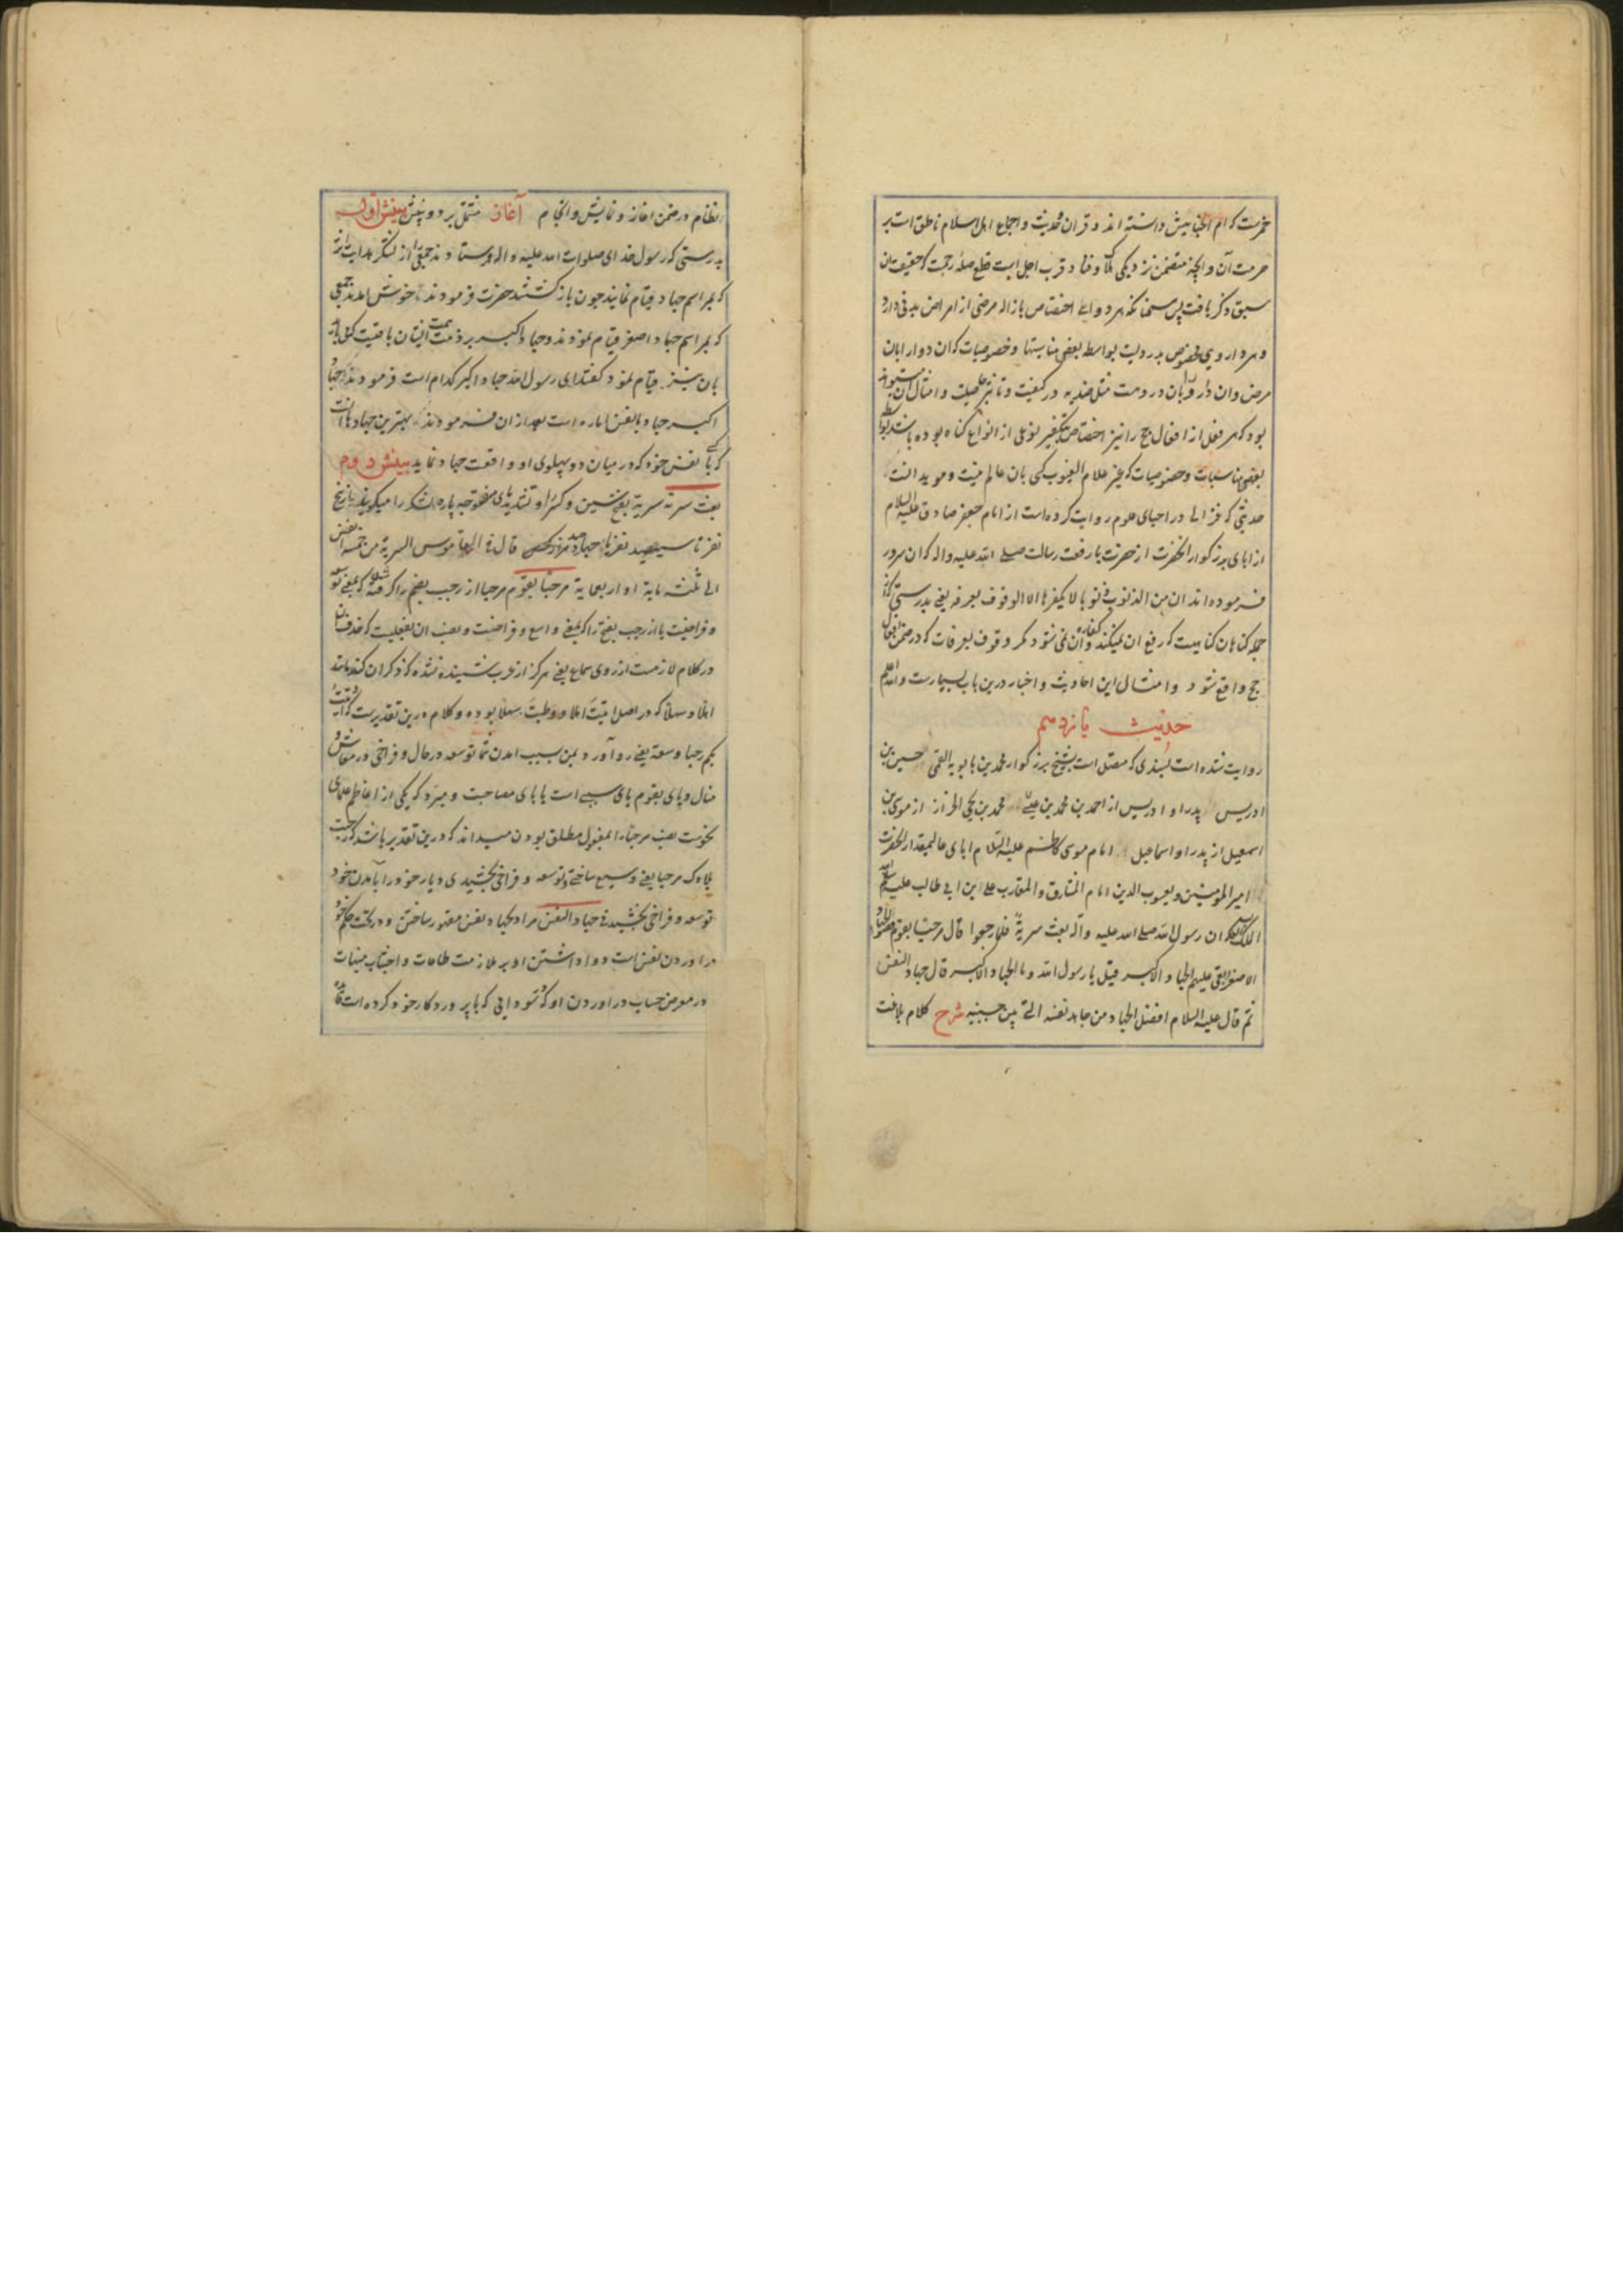 خمرست که ام الخبایثش دانسته اند و قران و حدیث و اجماع اهل اسلام ناطق است بر
حرمت آن و انچه متضمن نزدیکی بلا و فنا و قرب اجل است قطع صلۀ رحمت که حقیقت آن
سبق ذکر یافت پس همچنانکه هر دوایی اختصاص بازاله مرضی از امراض بدنی دارد
و هر داروی مخصوص بدردیست بواسطه بعضی مناسبتها و خصوصیات که ان دوا را بان
مرض وان دارو را بان درد هست مثل ضدیه در کیفیت و تاثیر بخاصیت و امثال آن میتواند
بود که هر فعل از افعال حج را نیز اختصاص بتکفیر نوعی از انواع کناه بوده باشد بواسطه
بعضی مناسبات و خصوصیات که غیر علام الغیوب کسی بان عالم نیست و موید انست
حدیثی که غزالی در احیای علوم روایت کرده است از امام جعفر صادق علیه السلام
از ابای بزرکوار انحضرت از حضرت با رفعت رسالت صلی الله علیه و اله که ان سرور
فرموده اند ان من الذنوب ذنوبا لا یکفرها الا الوقوف بعرفه یعنی بدرستی که از
جمله کناهان کناهیست که رفع ان نمیکند و کفاره آن نمی شود مکر وقوف بعرفات که در ضمن افعال
حج واقع شود و امثال این احادیث و اخبار درین باب بسیارست والله اعلم
حدیث پانزدهم
روایت شده است بسندی که متصل است بشیخ بزرکوار محمد بن بابویه القمی حسین بن
ادریس پدر او ادریس از احمد بن محمد بن عیسی محمد بن یحی الخزاز از موسی بن
اسمعیل از پدر او اسماعیل امام موسی کاظم علیه السلام ابای عالیمقدار انحضرت
امیر المومنین و یعسوب الدین امام المشارق و المغارب علی ابن ابی طالب علیه سلام الله
الملک ان رسول الله صلی الله علیه و آله بعث سریة فلما رجعوا قال مرحبا بقوم قضوا الجهاد
الاصغر و بقی علیهم الجهاد الاکبر قیل یا رسول الله و ما الجهاد الاکبر قال جهاد النفس
ثم قال علیه السلام افضل الجهاد من جاهد نفسه التی بین جنبیه شرح کلام بلاغت
نظام در ضمن اغاز و نمایش و انجام آغاز مشتمل بر دو بینش بینش اول
بدرستی که رسول خدای صلوات الله علیه و اله فرستادند جمعی را از لشکر هدایت اثر
که بمراسم جهاد قیام نمایند چون بازکشتند حضرت فرمودند خوش امدند جمعی
که بمراسم جهاد اصغر قیام نمودند و جهاد اکبر بر ذمت همت ایشان باقیست که می باید
بان نیز قیام نمود کفتند ای رسول الله جهاد اکبر کدام است فرمودند جهاد
اکبر جهاد با نفس اماره است بعد از ان فرمودند بهترین جهادها انست
که با نفس خود که در میان دو پهلوی او واقعست جهاد نماید بینش دوم
بعث سریة سریة بفتح سین و کسر را و تشدید یای مفتوحه پاره لشکر را میکویند از پنج
نفر تا سیصد نفر یا چهارصد قال فی القاموس السریة من خمسة انفس
الی ثلثمایة او اربعمایة مرحبا بقوم مرحبا از رحب بضم را کرفته شده که بمعنی توسعه
و فراخیست یا از رحب بفتح را که بمعنی واسع و فراخست و نصب ان بفعلیست که حذف ان
در کلام لازمست از روی سماع یعنی هرکز از عرب شنیده نشده که ذکر ان کنند مانند
اهلا و سهلا که در اصل اتیت اهلا و وطیت سهلا بوده و کلام درین تقدیرست که اتیت
بکم رحبا و سعة یعنی روآورد بمن بسبب امدن شما توسعه در حال و فراخی در معاش و
منال و بای بقوم بای سببی است یا بای مصاحبت و مبرد که یکی از اعاظم علمای
نحوست نصب مرحبا را بمفعول مطلق بودن میداند که درین تقدیر باشد که رحبت
بلادک مرحبا یعنی وسیع ساختی و توسعه و فراخی بخشیدی دیار خود را بآمدن خود
توسعه و فراخی بخشیدنی جهاد النفس مراد بجهاد نفس مقهور ساختن و در تحت حکم خود
دراوردن نفس است و واداشتن او بر ملازمت طاعات و اجتناب منهیات
در معرض حساب دراوردن او که سودایی که با پروردکار خود کرده است